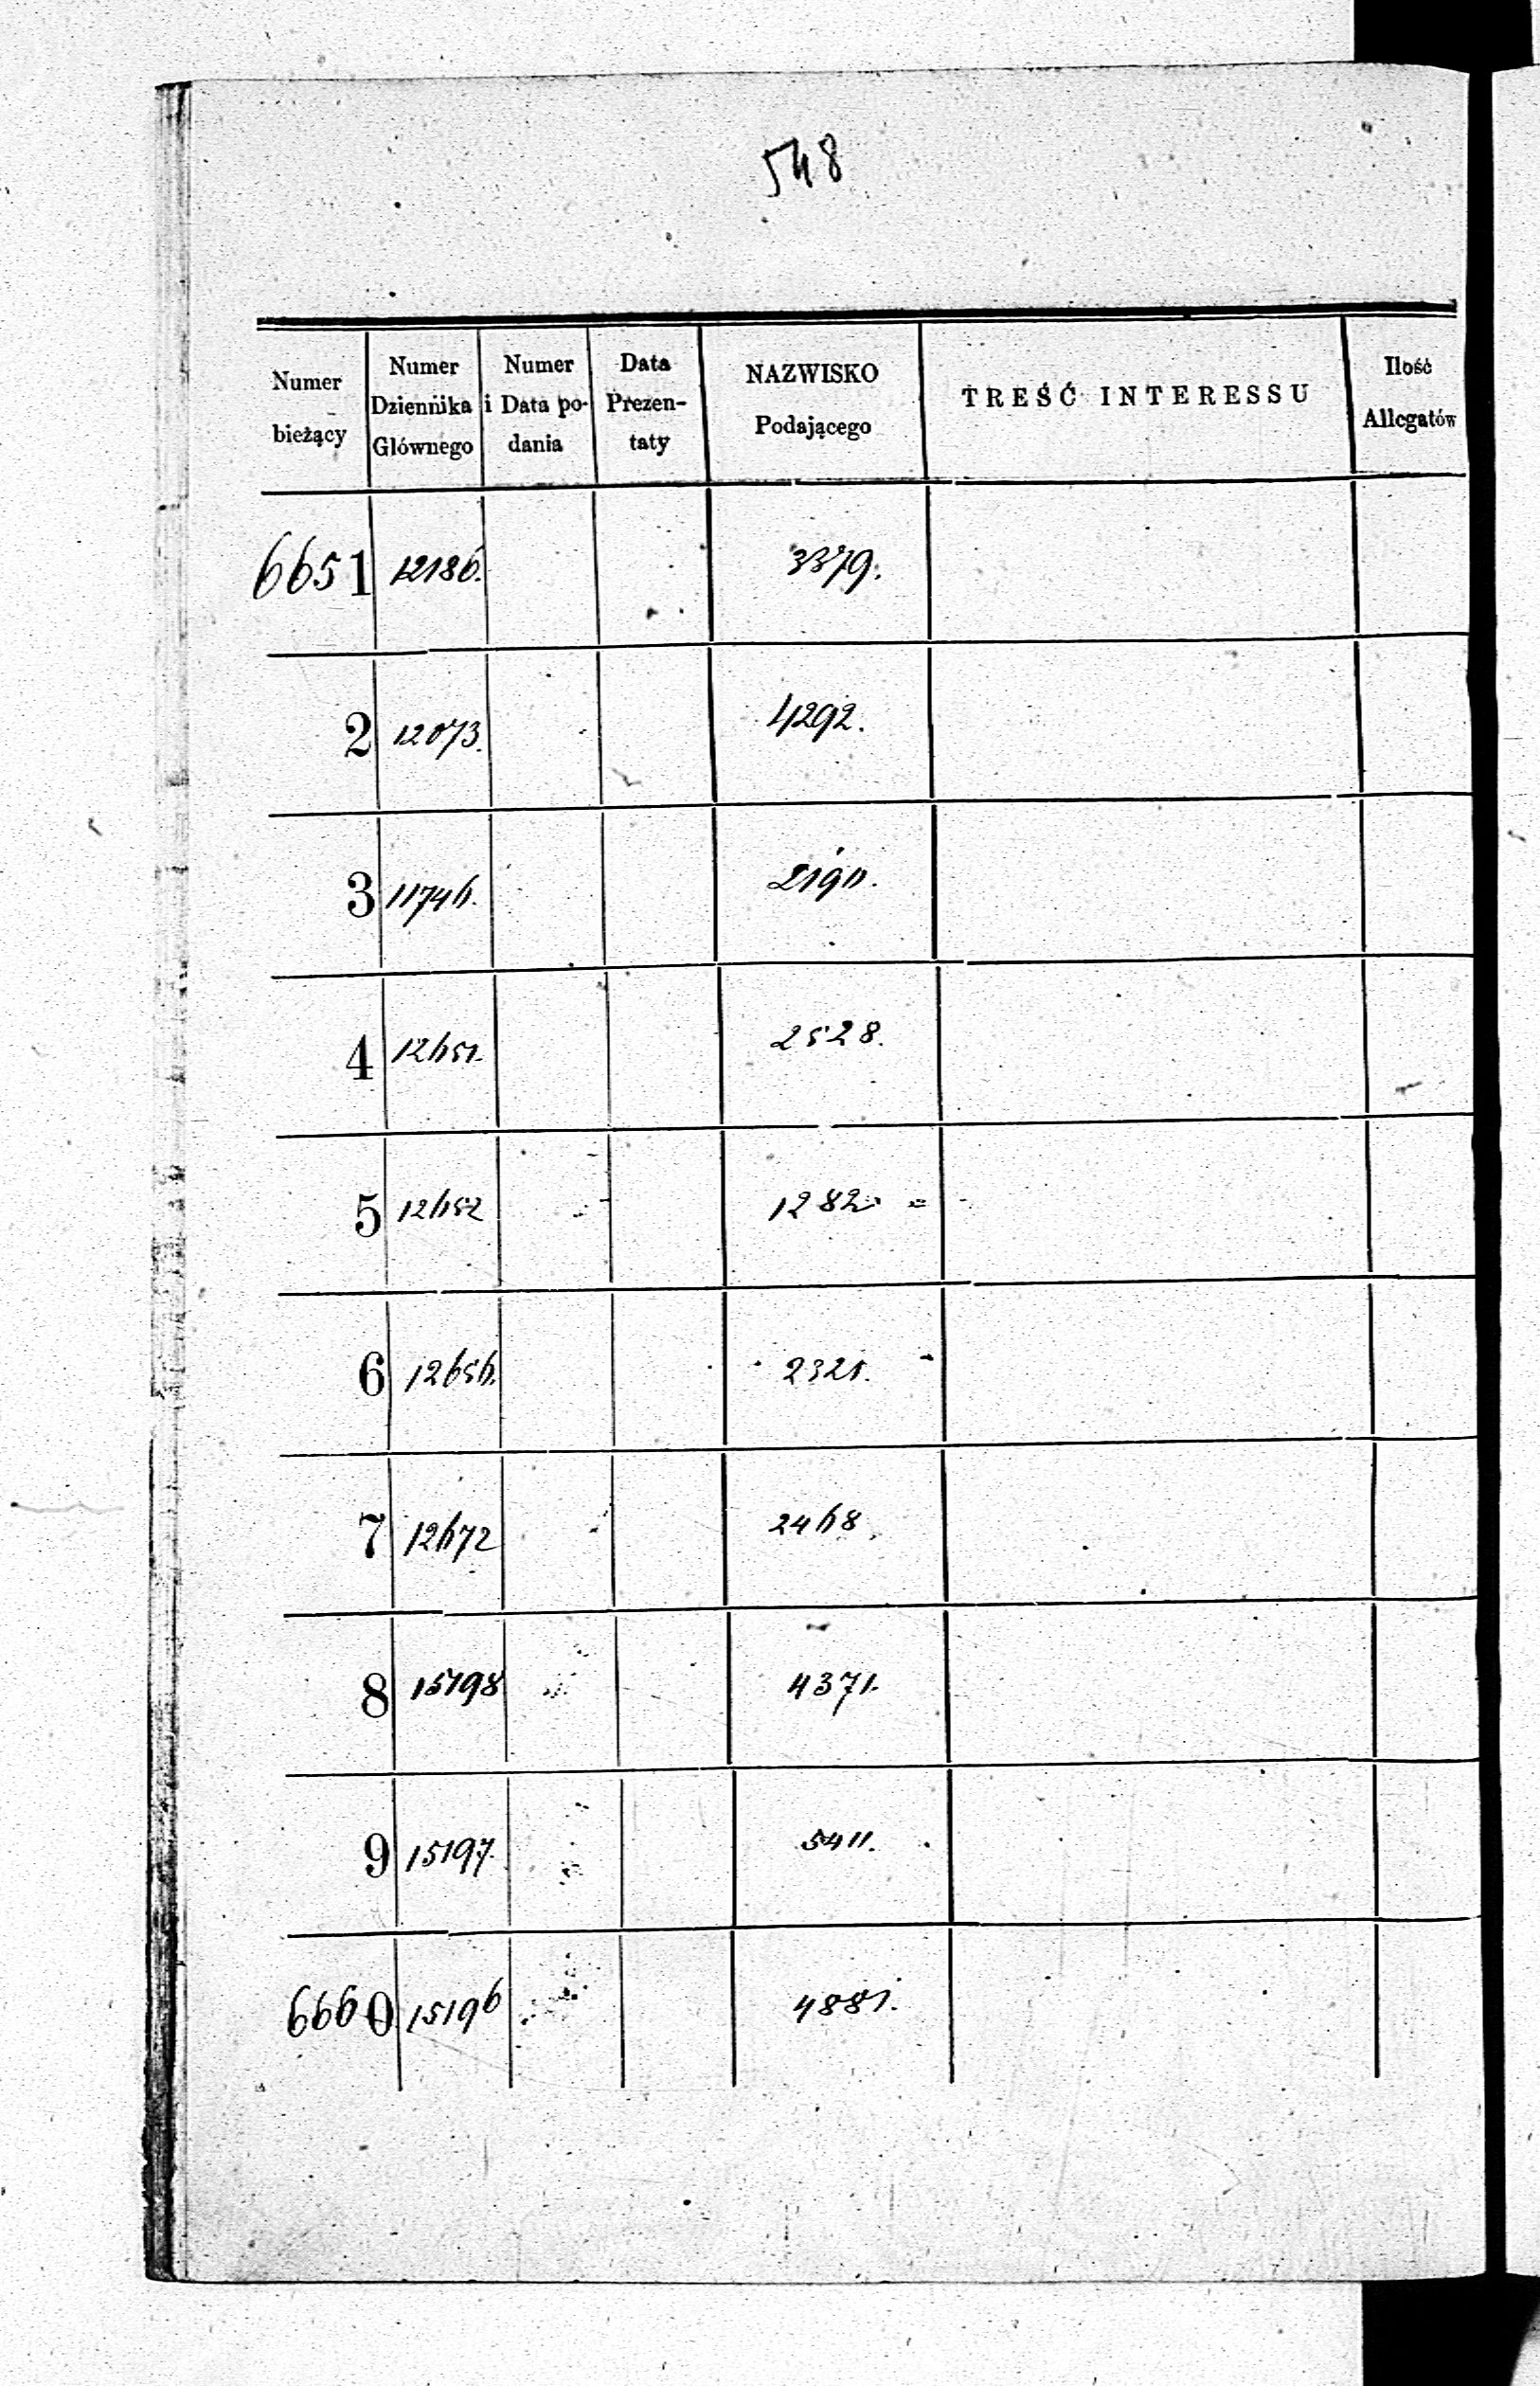 548
Numer bieżący | Numer Dziennika Głównego | Numer i Data podania | Data Prezentaty | NAZWISKO Podającego | TREŚĆ INTERESSU | Ilość Allegatów
6651 12186. 3379.
2 12073. 4292.
3 11746. 2190.
4 12651. 2528.
5 12652 1282
6 12656. 2321.
7 12672 2468.
8 15198 4371.
9 15197. 5411.
6660 15196 4881.